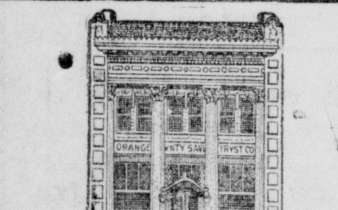 ORANGE UNTY SAV TRYST CO